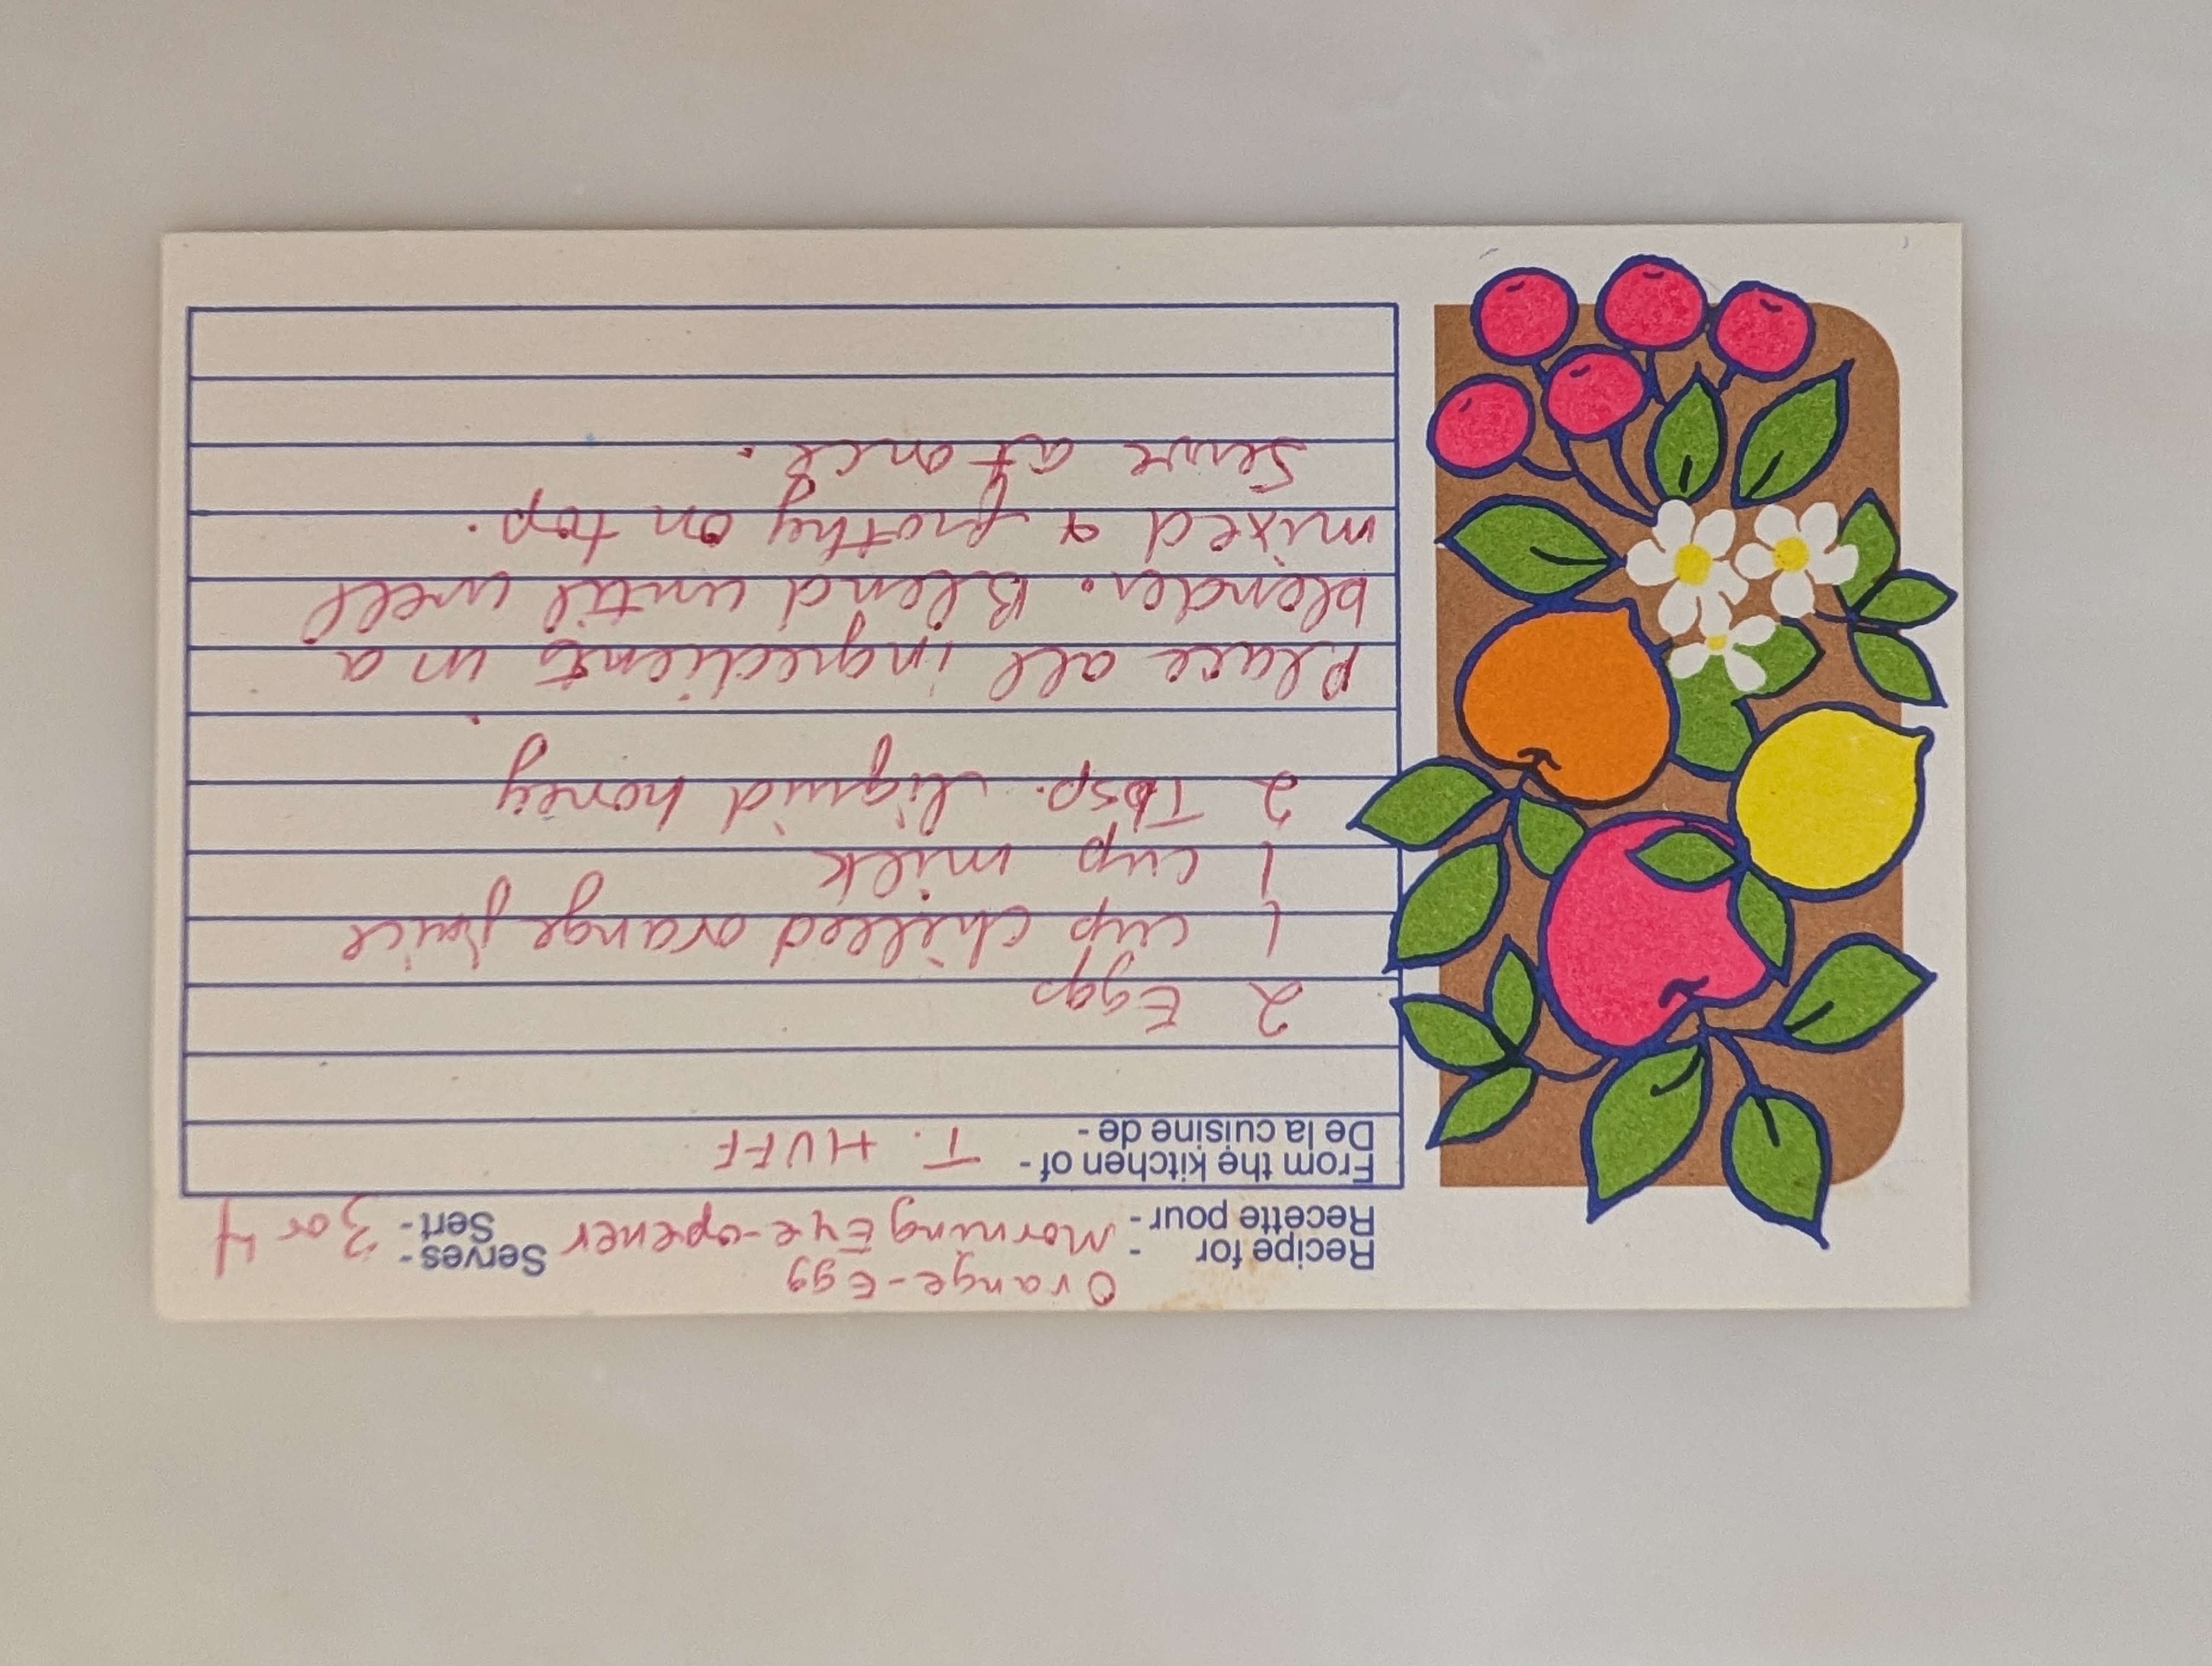 Orange-Egg
Recipe for - Morning Eye-opener Serves - 3 or 4
Recette pour - Sert -
From the kitchen of - T. HUFF
De la cuisine de -
2 Eggs
1 cup chilled orange juice
1 cup milk
2 Tbsp. liquid honey
Place all ingredients in a
blender. Blend until well
mixed & frothy on top.
Serve at once.